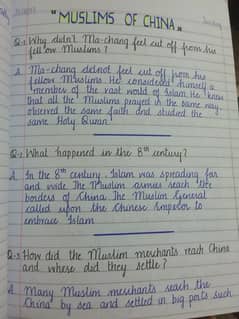 "MUSLIMS OF CHINA"
Sunday
Q:1 Why didn't Ma-chang feel cut off from his
fellow Muslims?
A Ma-chang did not feel cut off from his
fellow Muslims. He considered himself a
member of the vast world of Islam. He knew
that all the Muslims prayed in the same way
observed the same faith and studied the
same Holy Quran
Q:2 What happened in the 8th century?
A In the 8th century Islam was spreading far
and wide The Muslim armies reach the
borders of China The Muslim General
called upon the Chinese Emperor to
embrace Islam
Q:3 How did the Muslim merchants reach China
and where did they settle?
A Many Muslim merchants reach the
China by sea and settled in big ports such